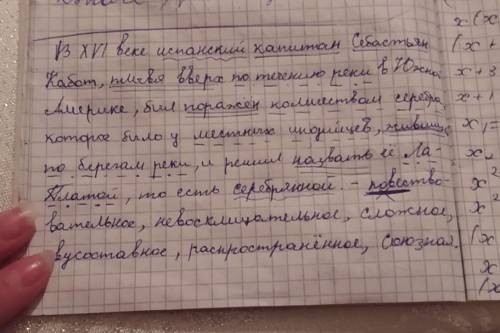 В XVI веке испанский капитан Себастьян
Кабот, плывя вверх по течению реки в Южно
Америке, был поражён количеством серебра,
которое было у местных индейцев, живших
по берегам реки, и решил назвать её Ла-
Платой, то есть серебряной. - повество-
вательное, невосклицательное, сложное,
вусоставное, распространённое, союзная.
x (x
(x
x + 3
x + 1
x² 
x²
(x
x
(x